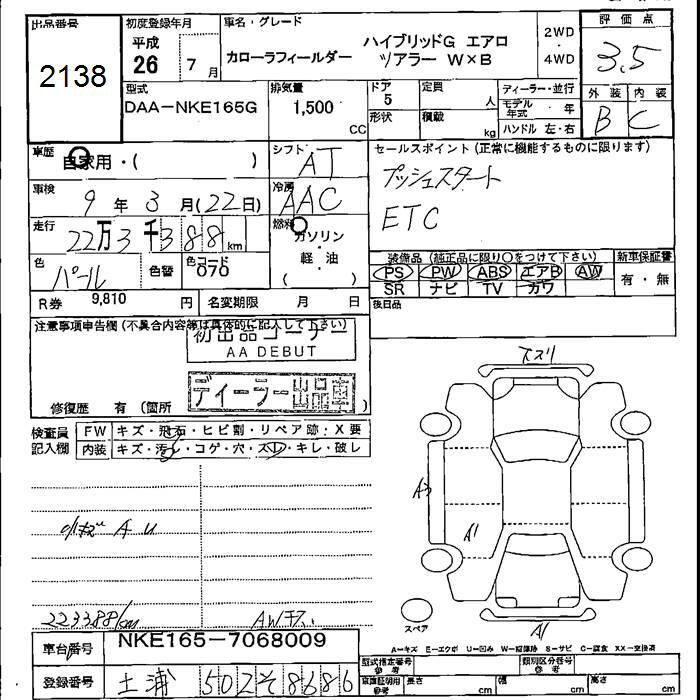 出品番号
2138
初度登録年月
平成
26 7月
車名・グレード
カローラフィールダー
ハイブリッドG エアロ
ツアラー W×B
2WD
・
4WD
評価点
3.5
外装 内装
B C
型式
DAA-NKE165G
排気量
1,500
cc
ドア
5
定員
人
形状
積載
kg
ディーラー・並行
モデル年式 ・ 年
ハンドル 左・右
車歴
自家用・( )
シフト
AT
セールスポイント (正常に機能するものに限ります)
プッシュスタート
ETC
車検
9年 3月(22日)
冷房
AAC
走行
22万3千388km
燃料
ガソリン
軽・油
( )
色
パール
色替
色コード
070
R券 9,810 円
名変期限 月 日
装備品 (純正品に限り○をつけて下さい)
PS PW ABS エアB AW
SR ナビ TV カワ
新車保証書
有・無
後日品
注意事項申告欄 (不具合内容等は具体的に記入して下さい)
初出品コーナー
AA DEBUT
ディーラー出品車
修復歴 有 (箇所 )
検査員
記入欄
FW キズ・飛石・ヒビ割・リペア跡・X要
内装 キズ・汚レ・コゲ・穴・スレ・キレ・破レ
小キズ A U
223388km
AWキズ
スズリ
A3
A1
スペア
A1
A-キズ E-エクボ U-凹み W-補修跡 S-サビ C-腐食 XX-交換済
車台番号
NKE165-7068009
登録番号
土浦 502 そ 8686
型式指定番号
参考
類別区分番号
参考
車庫証明用
参考
長さ cm 幅 cm 高さ cm